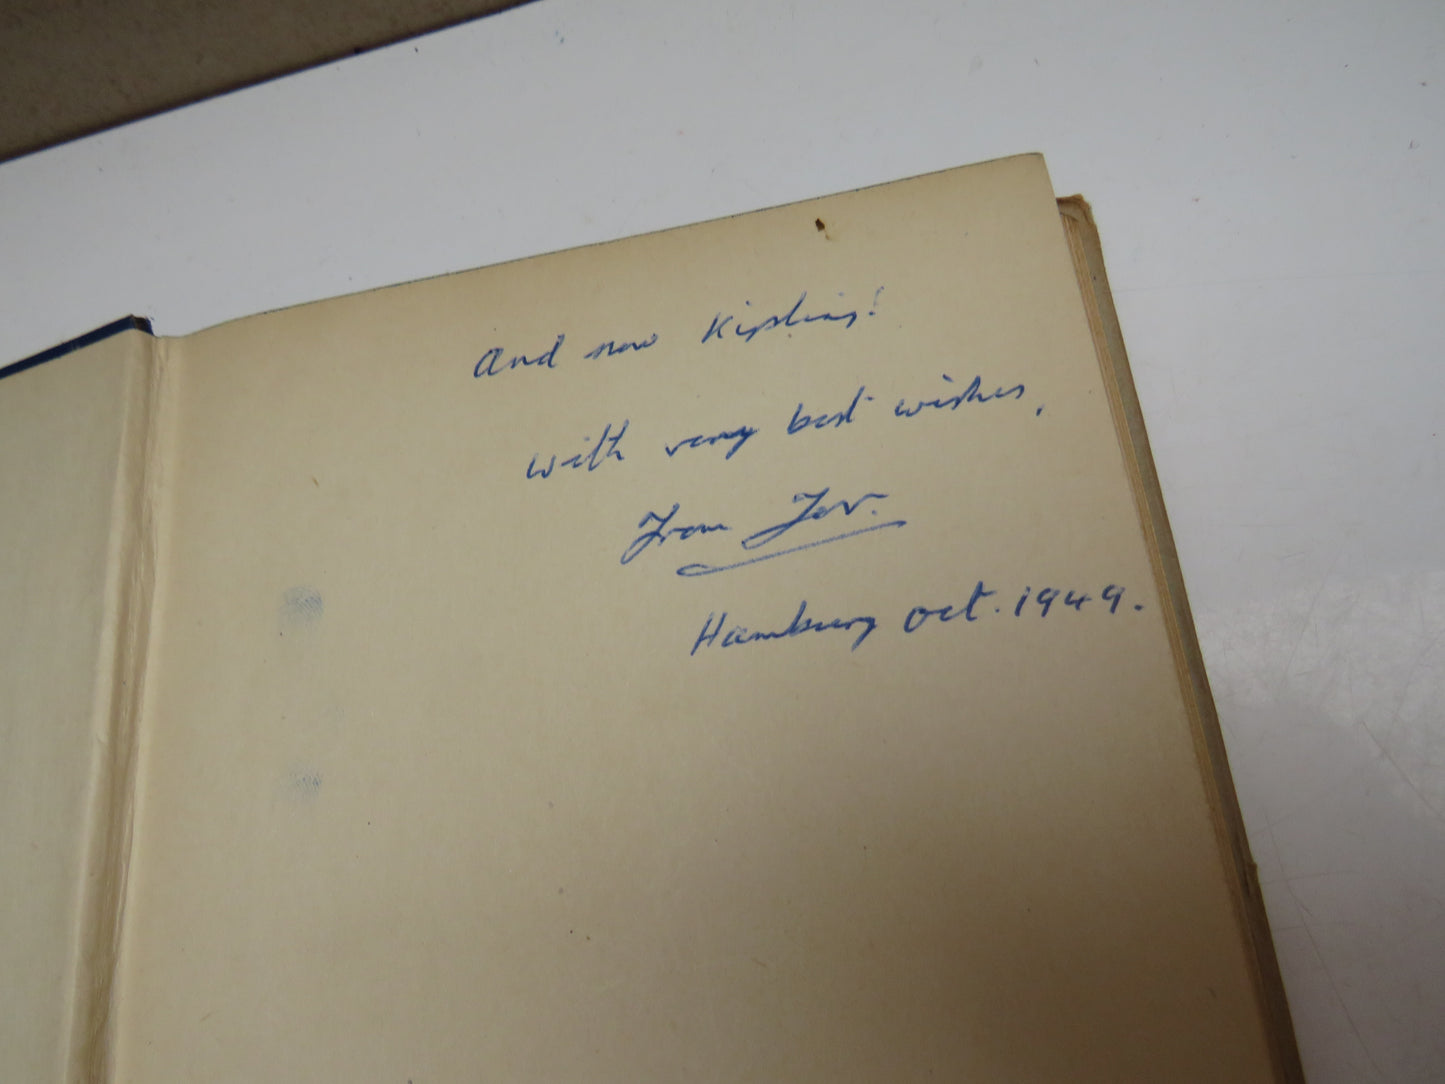 And now Kipling!
With very best wishes,
From
Hamburg Oct. 1949.